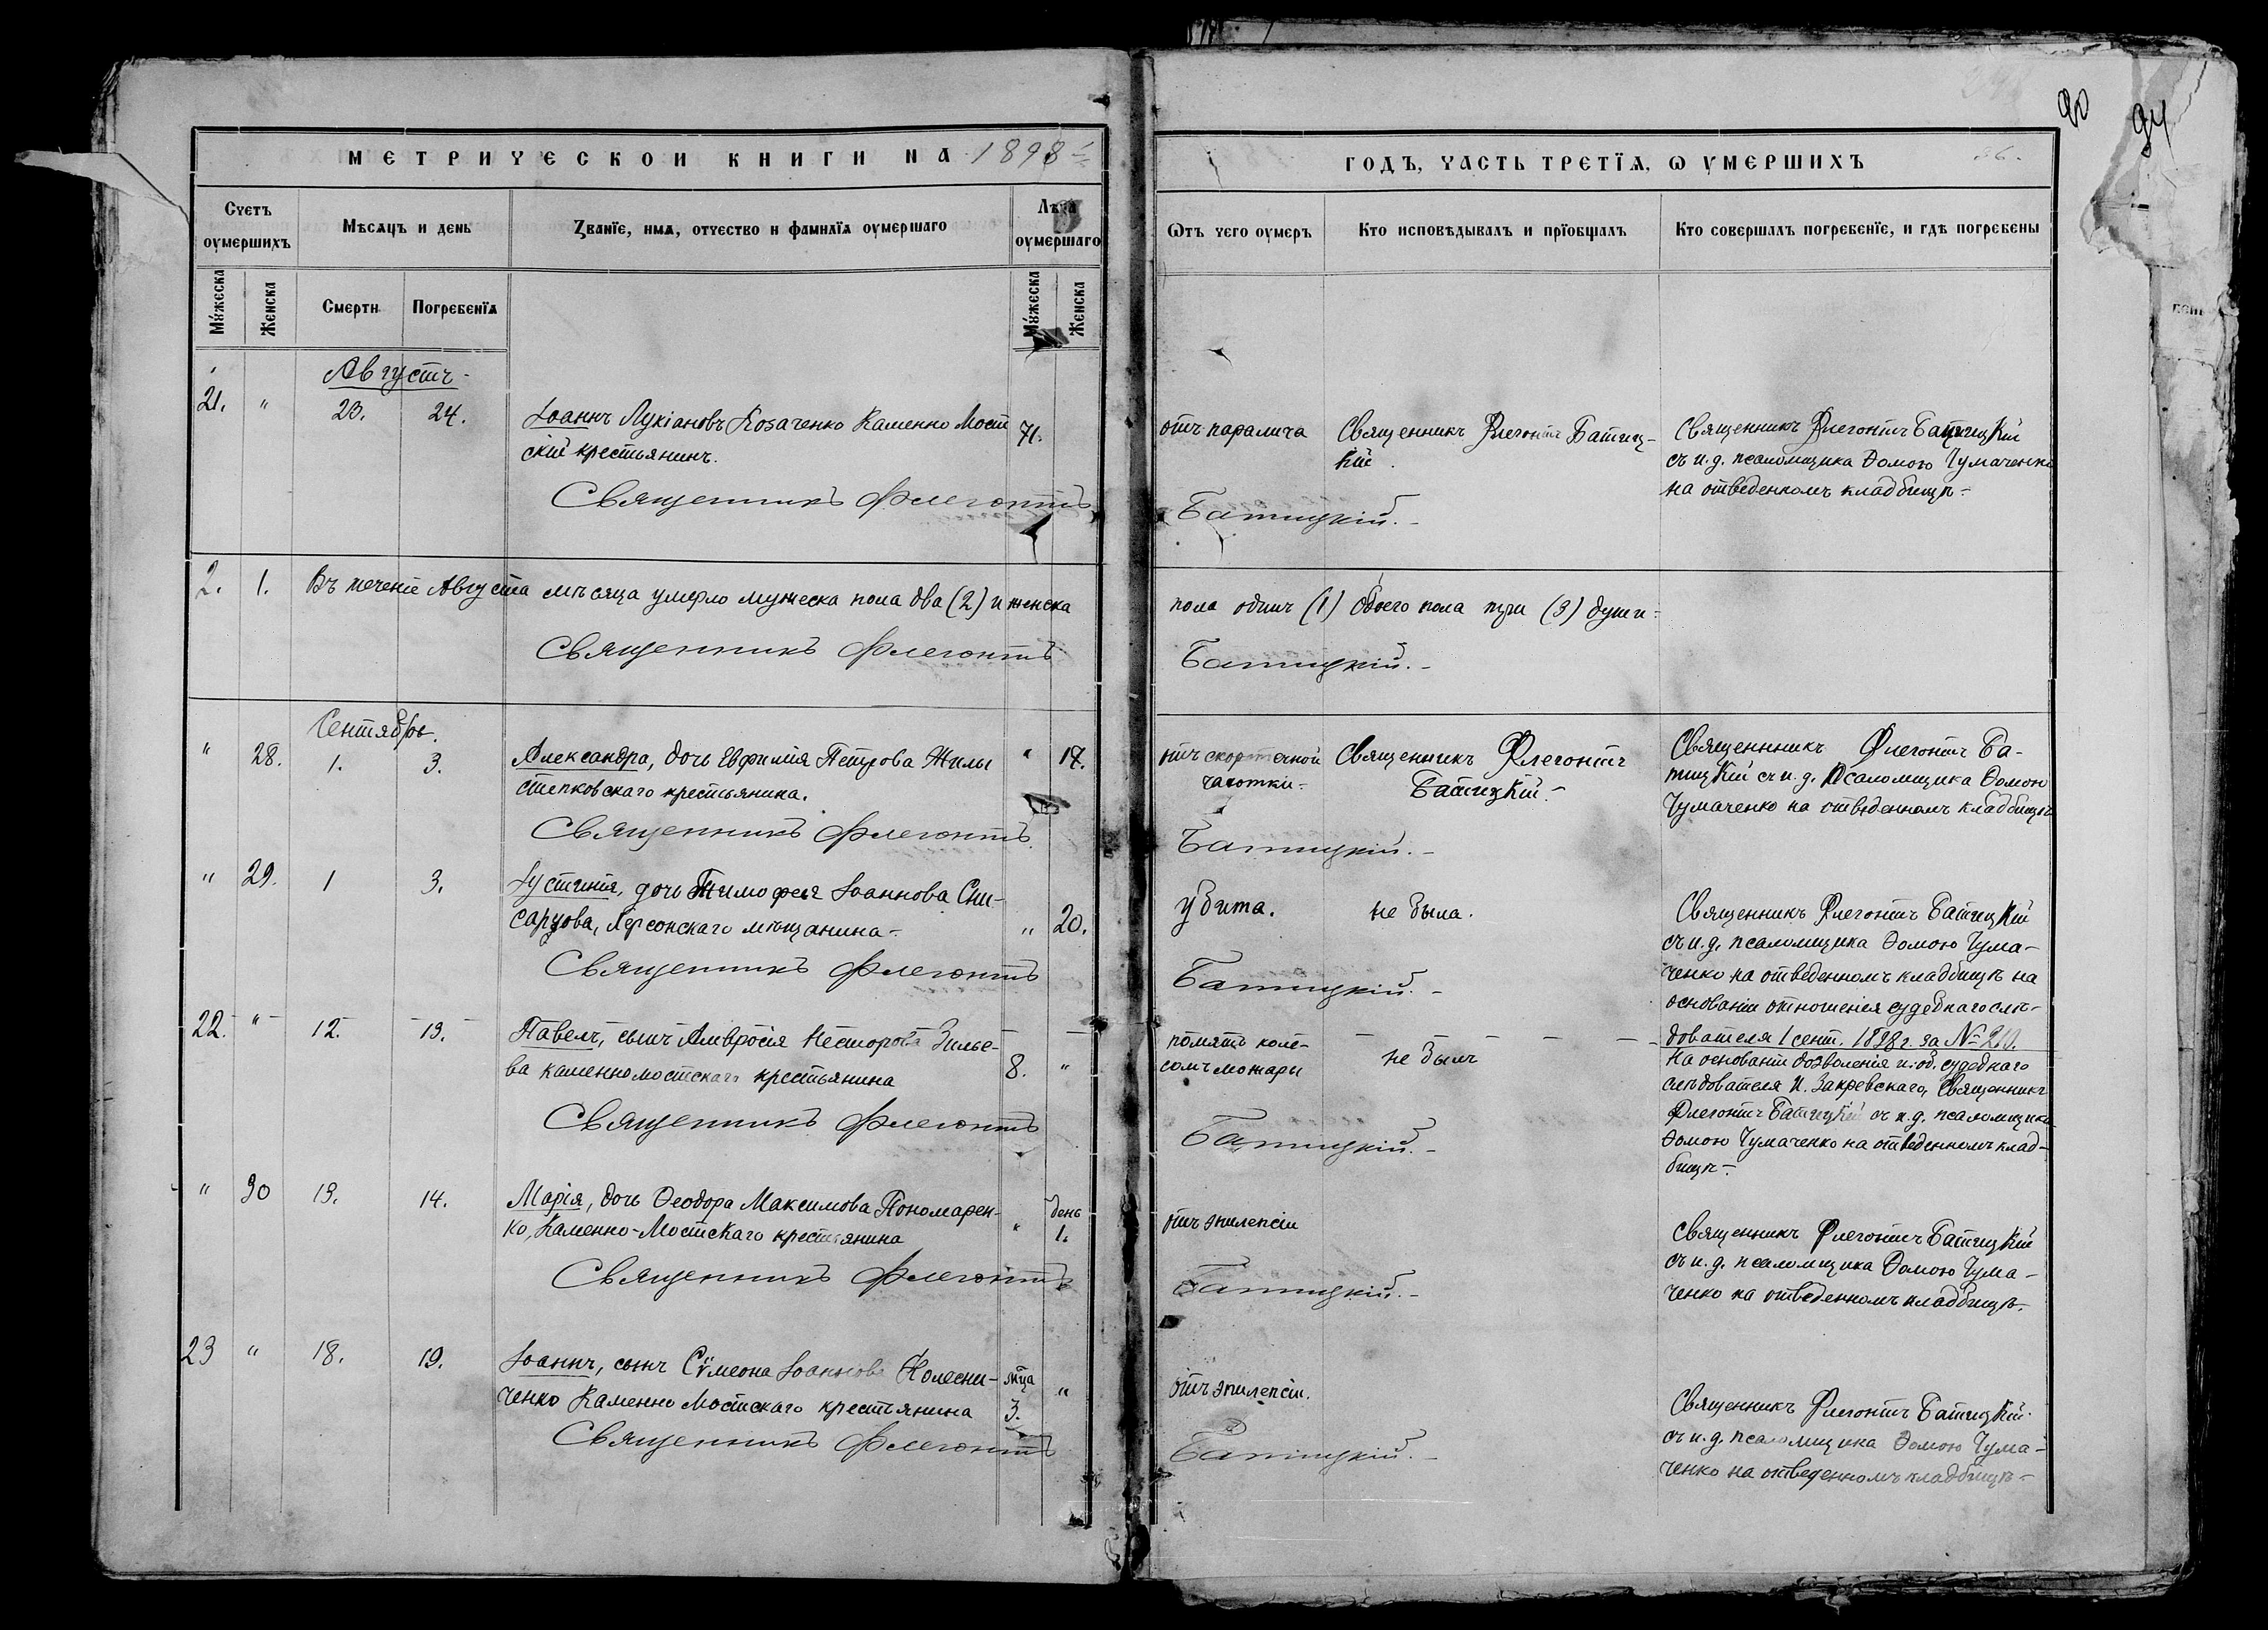 90
94
МЕТРИЧЕСКОЙ КНИГИ НА 1898 й
Счетъ оумершихъ
Мѣсяцъ и день
Званїе, имѧ, отчество и фамилїѧ оумершаго
Лѣта оумершаго
Мужеска
Женска
Смерти
Погребенїѧ
Мужеска
Женска
Августъ
21. " 23. 24. Іоаннъ Лукіановъ Козаченко Каменно Мост
скій крестьянинъ. 71.
Священникъ Флегонтъ
2. 1. Въ теченіе Августа мѣсяца умерло мужеска пола два (2) и женска
Священникъ Флегонтъ
Сентябрь.
" 28. 1. 3. Александра, дочь Евфимія Петрова Жилы
степковскаго крестьянина. " 17.
Священникъ Флегонтъ
" 29. 1 3. Іустинія, дочь Тимофея Іоаннова Сни-
сарцова, Херсонскаго мѣщанина - " 20.
Священникъ Флегонтъ
22. " 12. 13. Павелъ, сынъ Амвросія Несторова Зилье-
ва каменномостскаго крестьянина 8. "
Священникъ Флегонтъ
" 30 13. 14. Марія, дочь Ѳеодора Максимова Пономарен-
ко, Каменно-Мостскаго крестьянина " день 1.
Священникъ Флегонтъ
23 " 18. 19. Іоаннъ, сынъ Сѵмеона Іоаннова Колесни-
ченко Каменно Мостскаго крестьянина мца 3. "
Священникъ Флегонтъ
ГОДЪ, ЧАСТЬ ТРЕТЇѦ, Ѡ УМЕРШИХЪ
Ѿтъ чего оумеръ
Кто исповѣдывалъ и прїобщалъ
Кто совершалъ погребенїе, и гдѣ погребены
отъ паралича
Священникъ Флегонтъ Батиц-
кій.
Священникъ Флегонтъ Батицкій
съ и. д. псаломщика Ѳомою Чумаченко
на отведенномъ кладбищѣ -
Батицкій. -
пола одинъ (1) Обоего пола три (3) души -
Батицкій. -
отъ скоротечной
чахотки -
Священникъ Флегонтъ
Батицкій. -
Священникъ Флегонтъ Ба-
тицкій съ и. д. Псаломщика Ѳомою
Чумаченко на отведенномъ кладбищѣ
Батицкій. -
убита.
не была.
Священникъ Флегонтъ Батицкій
съ и. д. псаломщика Ѳомою Чума-
ченко на отведенномъ кладбищѣ на
основаніи отношенія судебнаго слѣ-
дователя 1 сент. 1898 г. за №
Батицкій. -
помятъ коле-
сомъ можары
не былъ
На основаніи дозволенія и. об. судебнаго
слѣдователя И. Закревскаго, Священникъ
Флегонтъ Батицкій съ и. д. псаломщика
Ѳомою Чумаченко на отведенномъ клад-
бищѣ -
Батицкій. -
отъ эпилепсіи
Священникъ Флегонтъ Батицкій
съ и. д. псаломщика Ѳомою Чума-
ченко на отведенномъ кладбищѣ.
Батицкій. -
отъ эпилепсіи.
Священникъ Флегонтъ Батицкій
съ и. д. псаломщика Ѳомою Чума-
ченко на отведенномъ кладбищѣ -
Батицкій. -